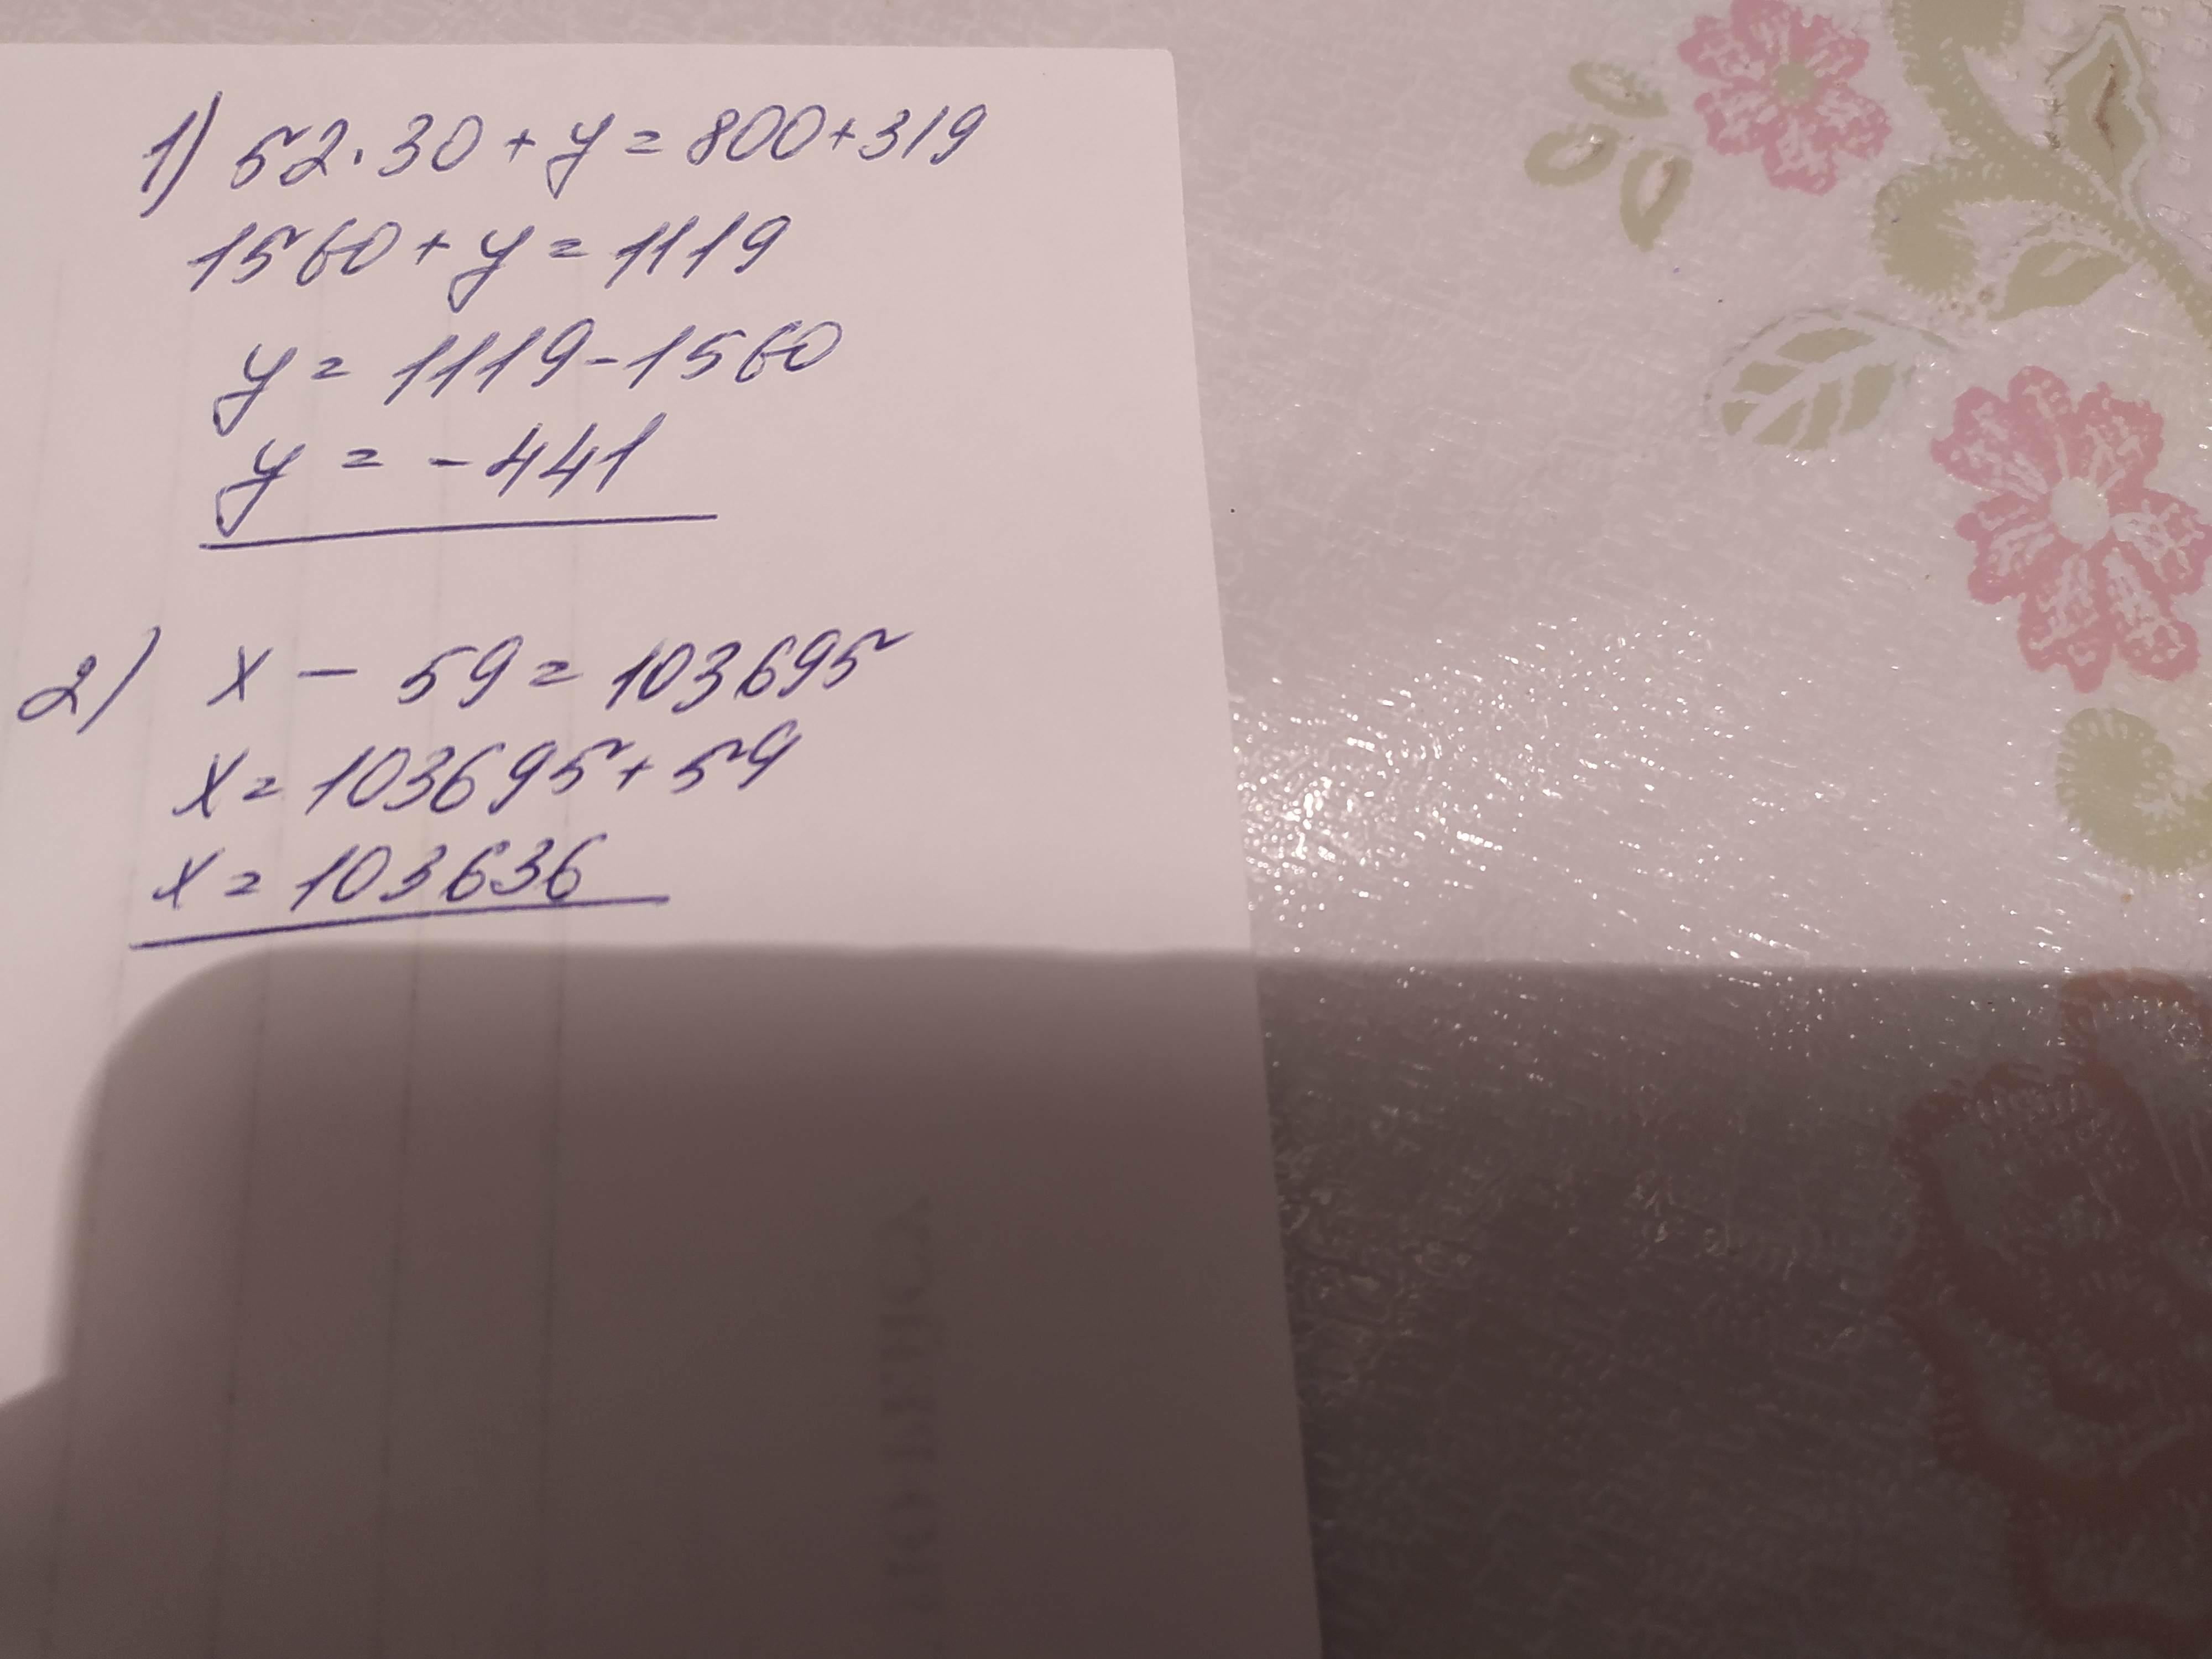 1) 52·30+y=800+319
1560+y=1119
y=1119-1560
y=-441
2) x-59=103695
x=103695+59
x=103636